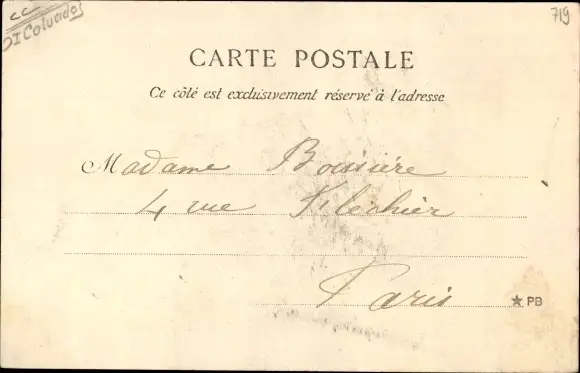 CC
DI Calvados
719
CARTE POSTALE
Ce côté est exclusivement réservé à l'adresse
Madame Boissière
4 rue Fléchier
Paris
★ PB